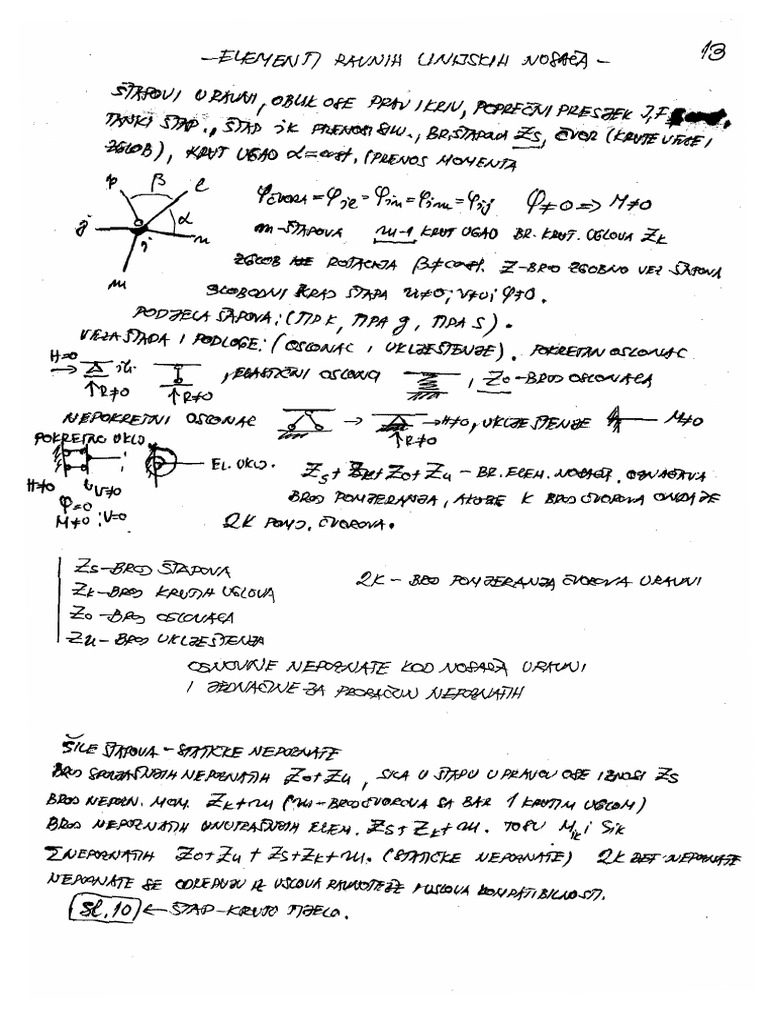 13
- ELEMENTI RAVNIH LINIJSKIH NOSAČA -
ŠTAPOVI U RAVNI, OBLIK OSE PRAV I KRIV, POPREČNI PRESJEK J, F
TANKI ŠTAP., ŠTAP ik PRENOSI SILU., BR. ŠTAPOVA Zs, ČVOR (KRUTE VEZE I
ZGLOB), KRUT UGAO α=const. (PRENOS MOMENTA
p β l
α
j i n
m
φČVORA = φil = φin = φim = φij φ≠0 => M≠0
m-ŠTAPOVA m-1 KRUT UGAO BR. KRUT. UGLOVA Zk
ZGLOB ROTACIJA β≠const. Z-BROJ ZGLOBNO VEZ. ŠTAPOVA
SLOBODNI KRAJ ŠTAPA u≠0; v≠0; φ≠0.
PODJELA ŠTAPOVA: (TIP K, TIPA g, TIPA S).
VEZA ŠTAPA I PODLOGE: (OSLONAC I UKLJEŠTENJE). POKRETAN OSLONAC
H=0
ili , ELASTIČNI OSLONCI , Zo-BROJ OSLONACA
R≠0 R≠0
NEPOKRETNI OSLONAC → → H≠0, UKLJEŠTENJE M≠0
R≠0
POKRETNO UKLJ.
EL. UKLJ. Zs + Zk + Zo + Zu - BR. ELEM. NOSAČA. OZNAČAVA
H≠0 V≠0
BROJ POMJERANJA, AKO JE K BROJ ČVOROVA ONDA JE
φ=0
M≠0; V=0 2K POMJ. ČVOROVA.
Zs - BROJ ŠTAPOVA
2K - BROJ POMJERANJA ČVOROVA U RAVNI
Zk - BROJ KRUTIH UGLOVA
Zo - BROJ OSLONACA
Zu - BROJ UKLJEŠTENJA
OSNOVNE NEPOZNATE KOD NOSAČA U RAVNI
I JEDNAČINE ZA PRORAČUN NEPOZNATIH
SILE ŠTAPOVA - STATIČKE NEPOZNATE
BROJ SPOLJAŠNJIH NEPOZNATIH Zo + Zu, SILA U ŠTAPU U PRAVCU OSE IZNOSI Zs
BROJ NEPOZN. MOM. Zk + m (m - BROJ ČVOROVA SA BAR 1 KRUTIM UGLOM)
BROJ NEPOZNATIH UNUTRAŠNJIH ELEM. Zs + Zk + m. TO SU Mik i Sik
Σ NEPOZNATIH Zo + Zu + Zs + Zk + m. (STATIČKE NEPOZNATE) 2K DEF. NEPOZNATE
NEPOZNATE SE ODREĐUJU IZ USLOVA RAVNOTEŽE I USLOVA KOMPATIBILNOSTI.
Sl. 10 ← ŠTAP - KRUTO TIJELO.